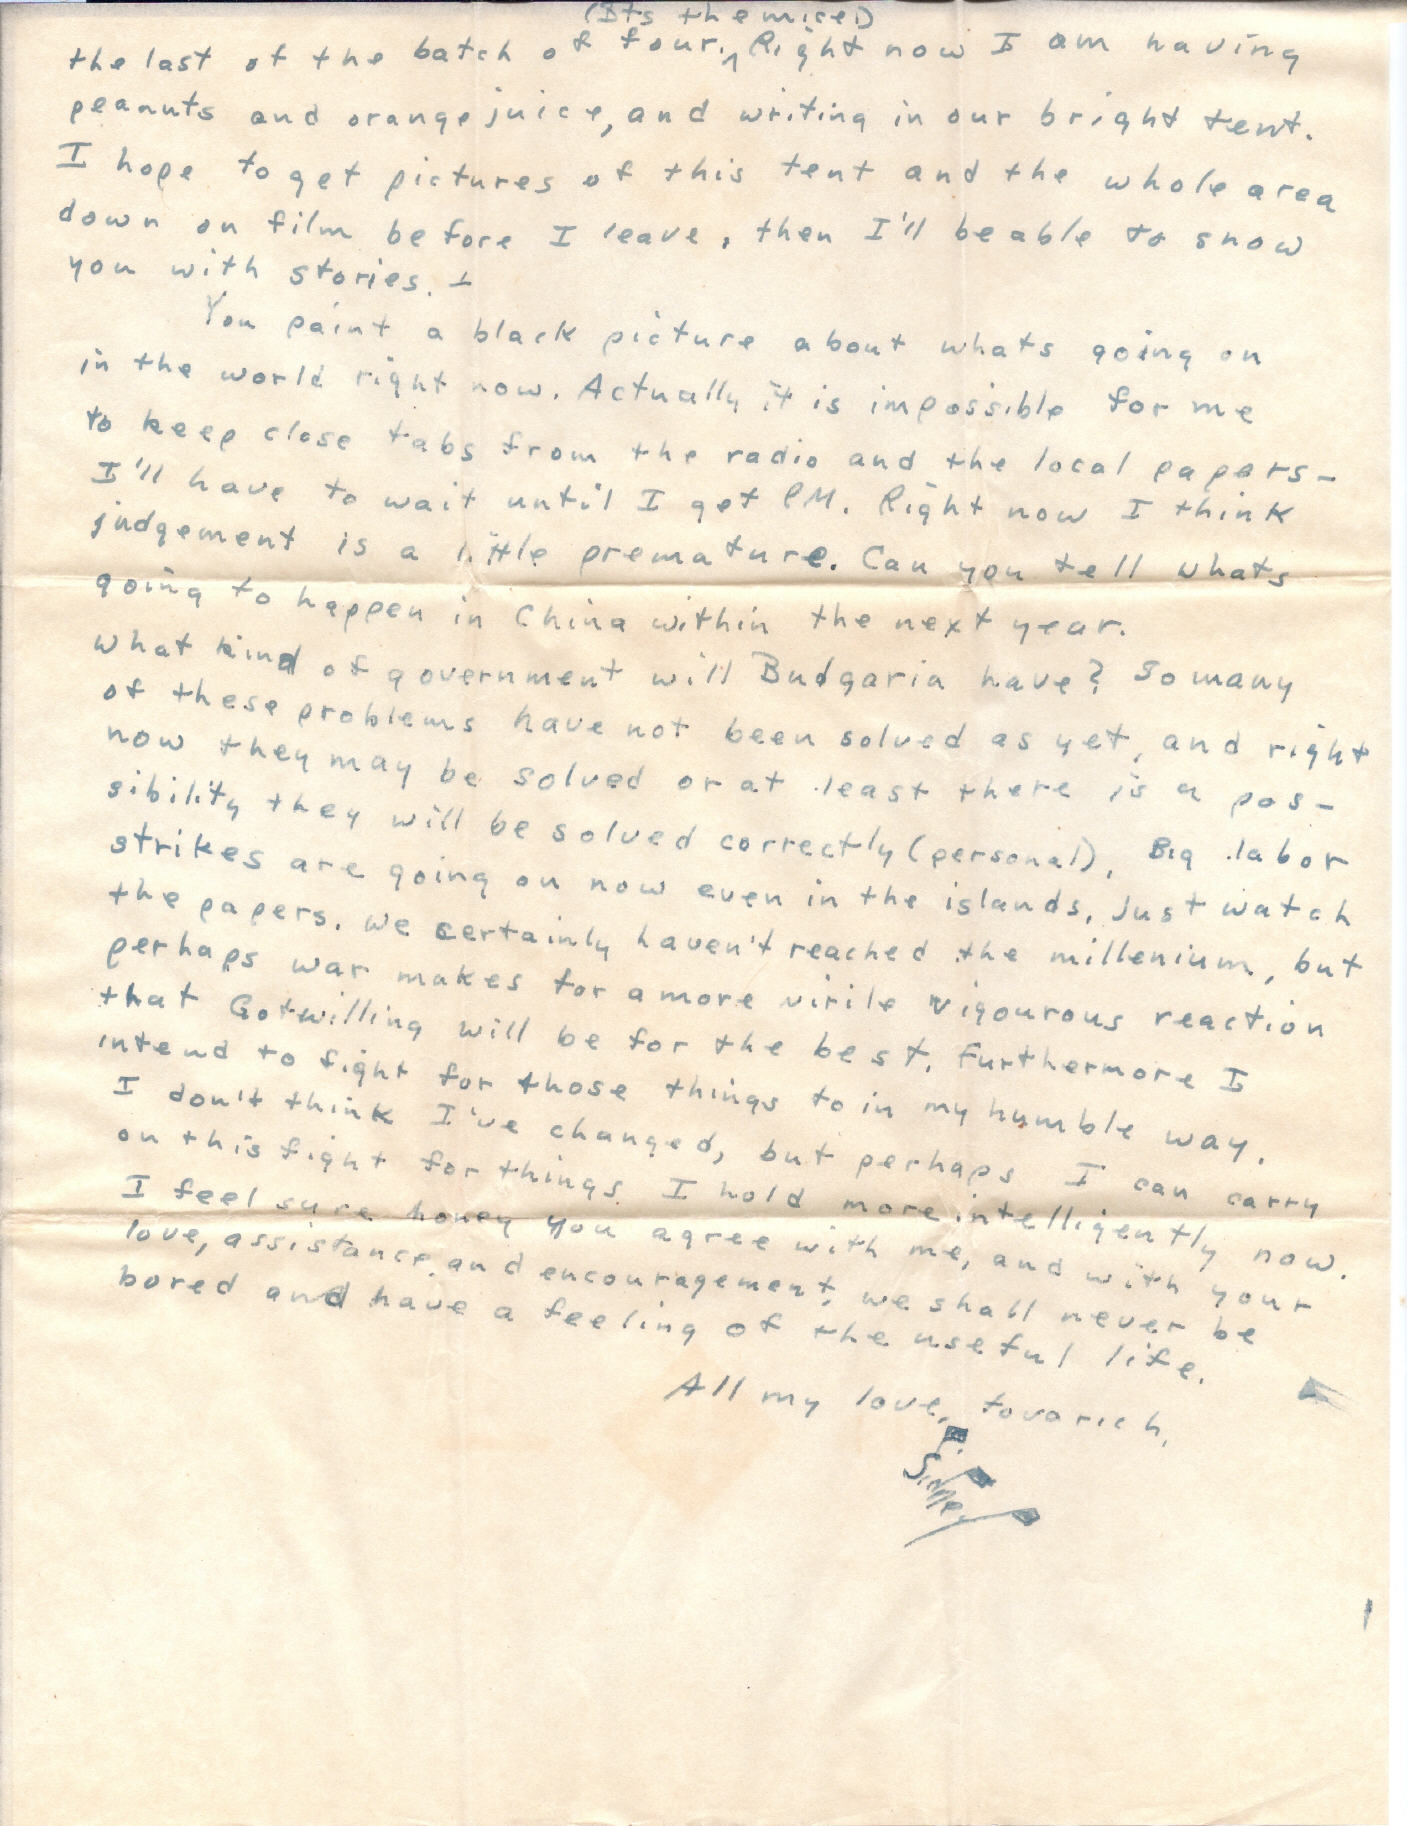 (Its the mice!)
the last of the batch of four.^ Right now I am having
peanuts and orange juice, and writing in our bright tent.
I hope to get pictures of this tent and the whole area
down on film before I leave, then I'll be able to snow
you with stories.
You paint a black picture about whats going on
in the world right now. Actually it is impossible for me
to keep close tabs from the radio and the local papers-
I'll have to wait until I get PM. Right now I think
judgement is a little premature. Can you tell whats
going to happen in China within the next year.
what kind of government will Budgaria have? So many
of these problems have not been solved as yet, and right
now they may be solved or at least there is a pos-
sibility they will be solved correctly (personal). Big labor
strikes are going on now even in the islands, Just watch
the papers. We certainly haven't reached the millenium, but
perhaps war makes for a more virile vigourous reaction
that Gotwilling will be for the best. Furthermore I
intend to fight for those things to in my humble way.
I don't think I've changed, but perhaps I can carry
on this fight for things I hold more intelligently now.
I feel sure honey you agree with me, and with your
love, assistance, and encouragement, we shall never be
bored and have a feeling of the useful life.
All my love, tovarich,